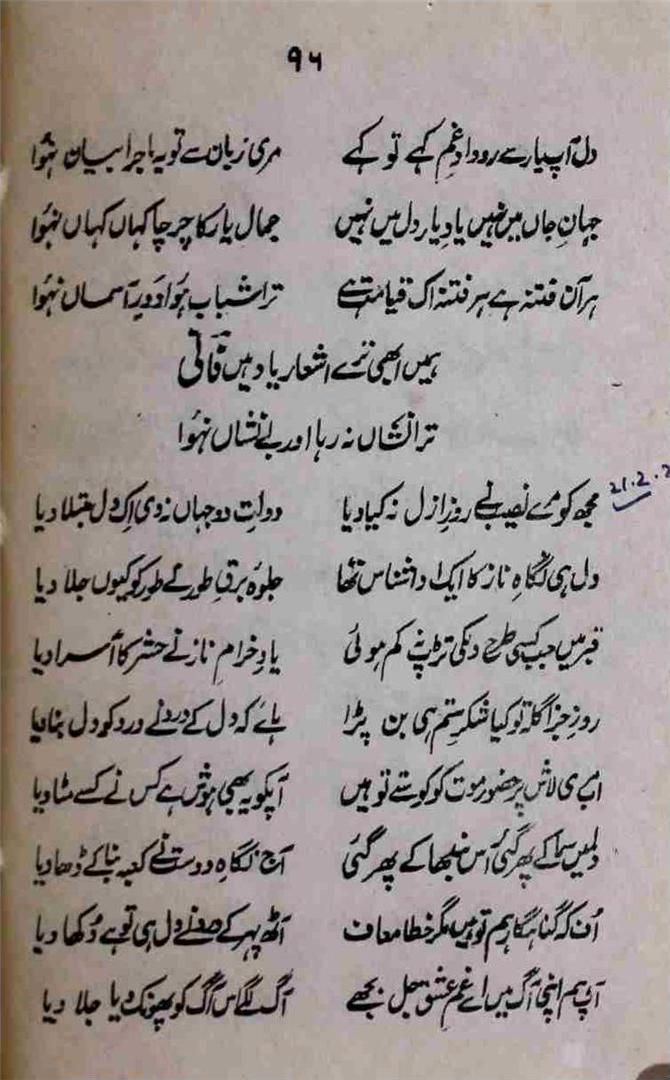 ۹۶
دل آپ پیارے رودادِ غم کہے تو کہے مری زبان سے تو یہ ماجرا بیان نہ ہُوا
جہانِ جاں میں نہیں یادِ یار دل میں نہیں جمال یار کا چرچا کہاں کہاں نہ ہُوا
ہر آن فتنہ ہے ہر فتنہ اک قیامت ہے ترا شباب ہُوا دورِ آسماں نہ ہُوا
ہمیں ابھی ترے اشعار یاد ہیں فانیؔ
ترا نشاں نہ رہا اور بے نشاں نہ ہُوا
21.2.2
مجھ کو مرے نصیب نے روزِ ازل نہ کیا دیا دولتِ دو جہاں نہ دی اِک دل مبتلا دیا
دل ہی نگاہِ ناز کا ایک ادا شناس تھا جلوۂ برقِ طور نے طور کو کیوں جلا دیا
قبر میں جب کسی طرح دل کی تڑپ نہ کم ہوئی یادِ خرام ناز نے حشر کا آسرا دیا
روزِ جزا گلہ تو کیا شکرِ ستم ہی بن پڑا ہائے کہ دل کے درد نے درد کو دل بنا دیا
اب مری لاش پر حضور موت کو کوستے تو ہیں آپکو یہ بھی ہوش ہے کس نے کسے مٹا دیا
دلمیں سما کے پھر گئی آس بندھا کے پھر گئی آج نگاہِ دوست نے کعبہ بنا کے ڈھا دیا
اُف کہ گناہگار ہم تو ہیں مگر خطا معاف آٹھ پہر کے صدقے دل ہی تو ہے دُکھا دیا
آپ ہم اپنی آگ میں اے غمِ عشق جل بجھے آگ لگے اس آگ کو پھونک دیا جلا دیا